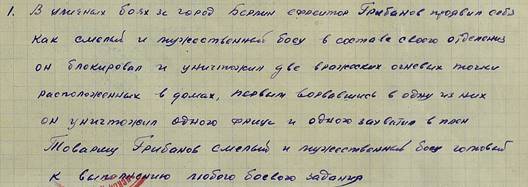 1. В уличных боях за город Берлин ефрейтор Грибанов проявил себя
как смелый и мужественный боец в составе своего отделения
он блокировал и уничтожил две вражеских огневых точки
расположенных в домах, первым ворвавшись в одну из них
он уничтожил одного фрица и одного захватил в плен
Товарищ Грибанов смелый и мужественный боец готовый
к выполнению любого боевого задания